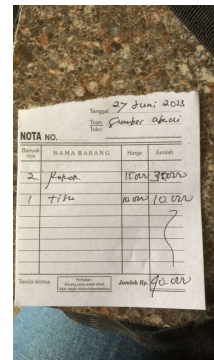 Tanggal 27 Juni 2023
Tuan Sumber abadi
Toko
NOTA NO.
Banyak nya NAMA BARANG Harga Jumlah
2 Rokok 15.000 30.000
1 Tisu 10.000 10.000
Tanda terima Perhatian : Barang yang sudah dibeli tidak dapat ditukar/dikembalikan Jumlah Rp. 40.000